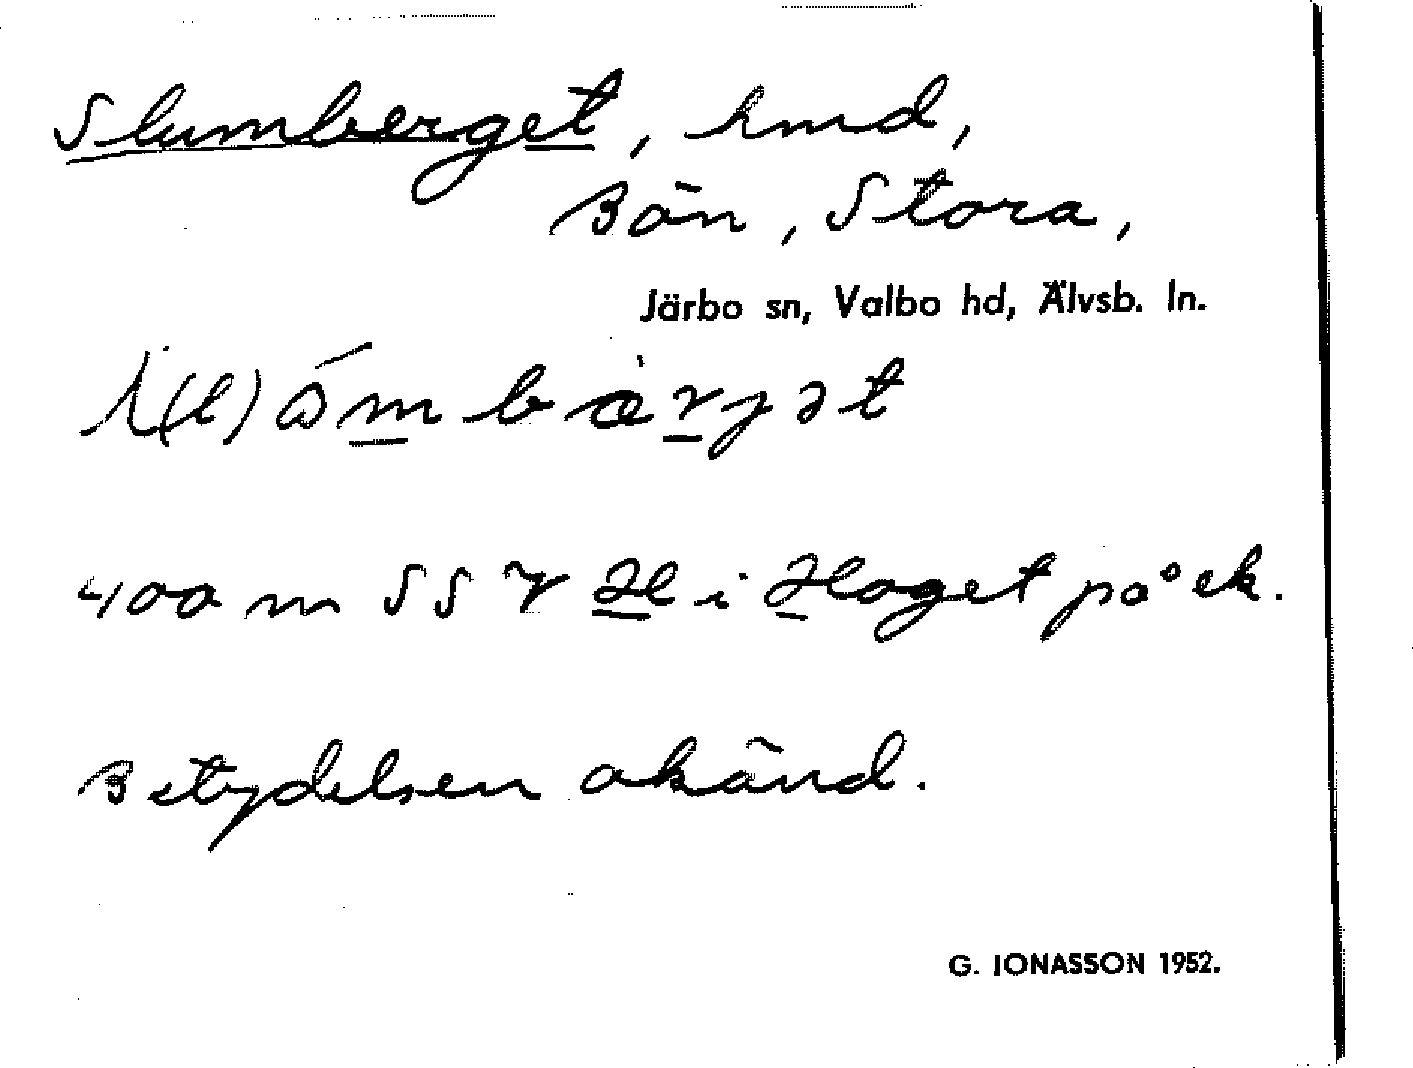 Slumberget, hmd,
Bön, Stora,
Järbo sn, Valbo hd, Älvsb. ln.
400 m SSV Hl i Hoget på ek.
Betydelsen okänd.
G. IONASSON 1952.